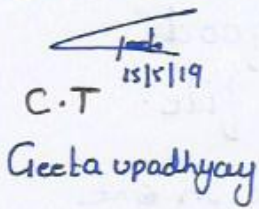 15/5/19
C.T
Geeta upadhyay